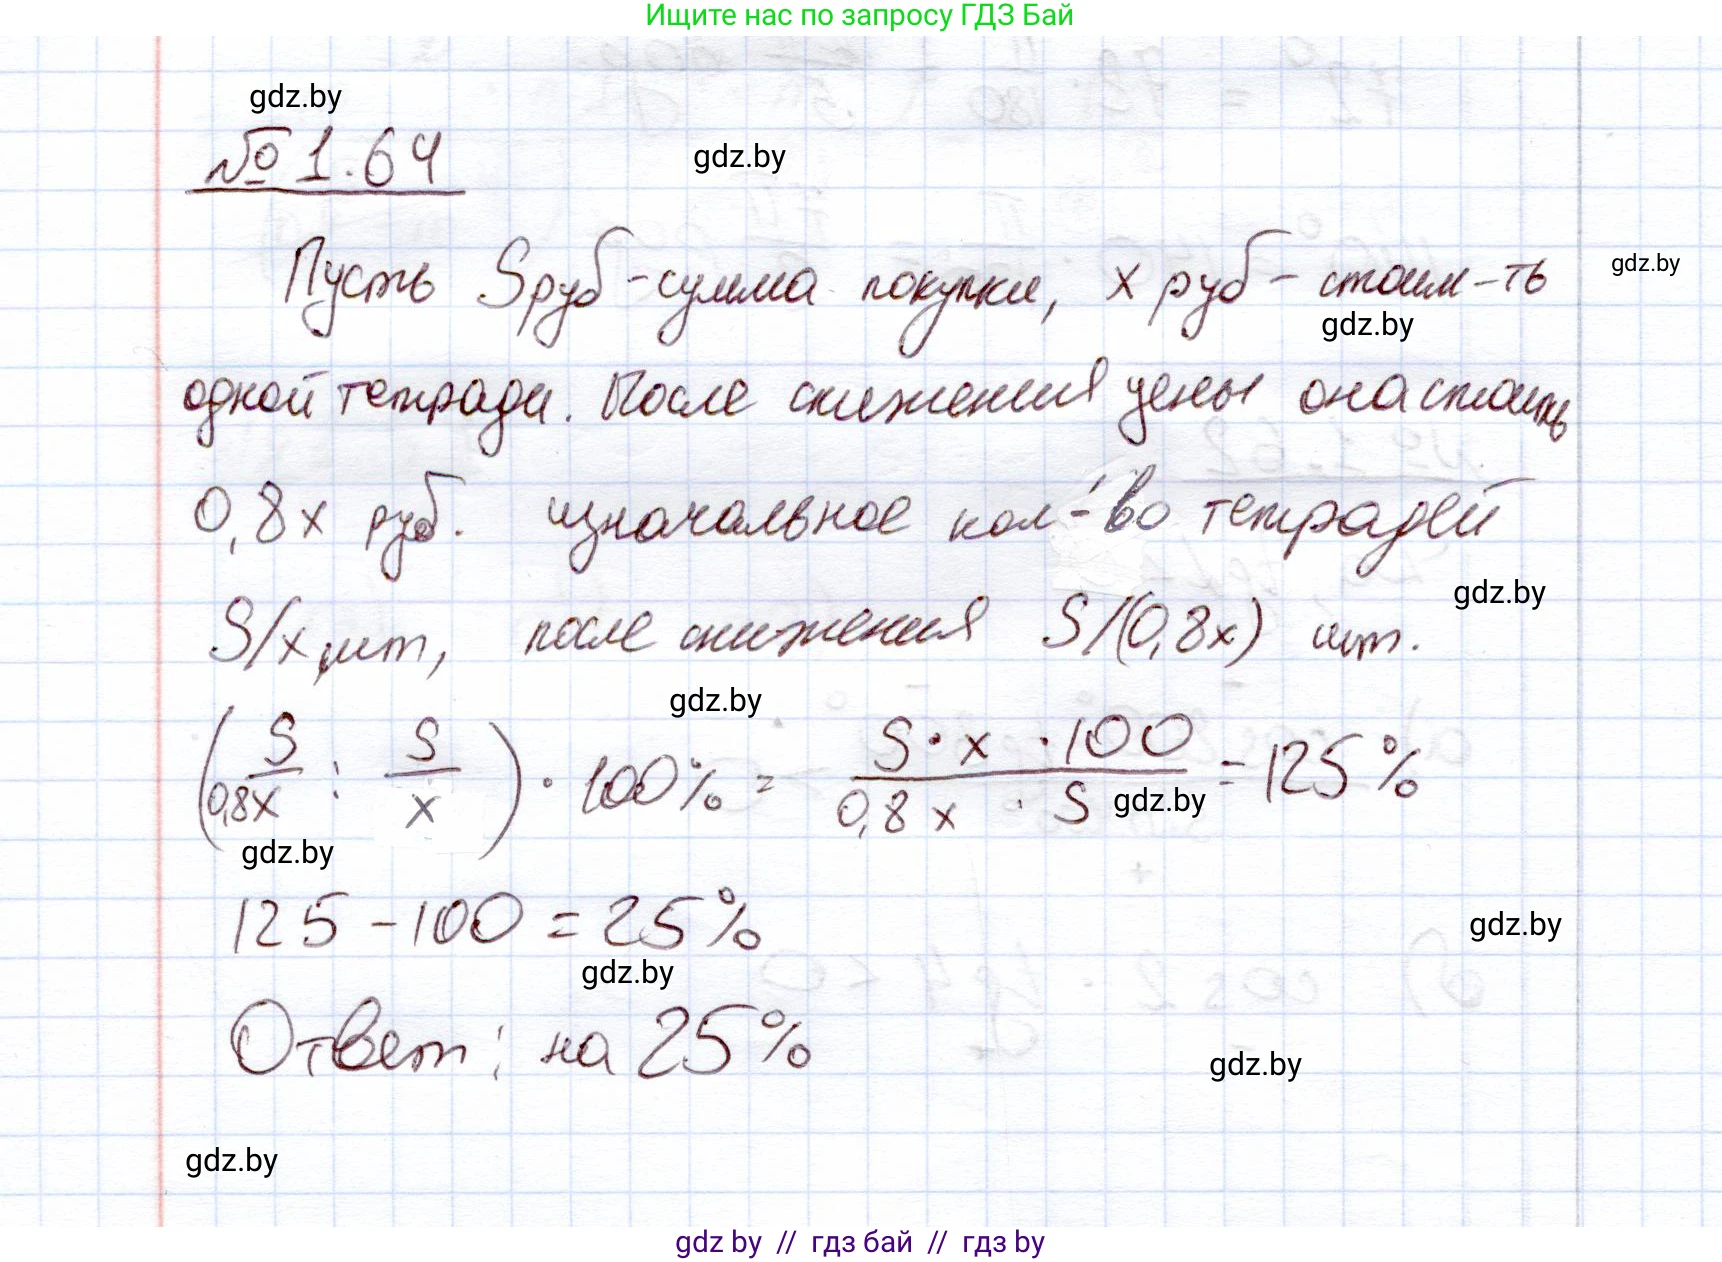 Ищите нас по запросу ГДЗ Бай
gdz.by
№ 1.64
gdz.by
Пусть S руб - сумма покупки, x руб - стоим-ть
gdz.by
gdz.by
одной тетради. После снижения цены она стоить
0,8x руб. изначальное кол-во тетрадей
gdz.by
S/x шт, после снижения S/(0,8x) шт.
gdz.by
(S/0,8x : S/x) · 100% = S · x · 100 / 0,8x · S = 125%
gdz.by
gdz.by
125 - 100 = 25%
gdz.by
gdz.by
Ответ: на 25%
gdz.by
gdz.by
gdz by // гдз бай // гдз by